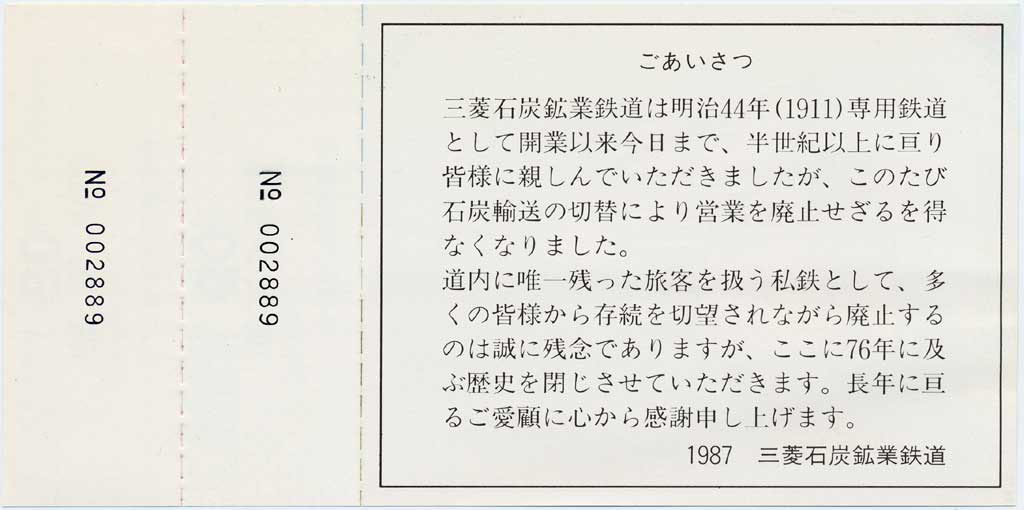 № 002889
№ 002889
ごあいさつ
三菱石炭鉱業鉄道は明治44年(1911)専用鉄道
として開業以来今日まで、半世紀以上に亘り
皆様に親しんでいただきましたが、このたび
石炭輸送の切替により営業を廃止せざるを得
なくなりました。
道内に唯一残った旅客を扱う私鉄として、多
くの皆様から存続を切望されながら廃止する
のは誠に残念でありますが、ここに76年に及
ぶ歴史を閉じさせていただきます。長年に亘
るご愛顧に心から感謝申し上げます。
1987 三菱石炭鉱業鉄道